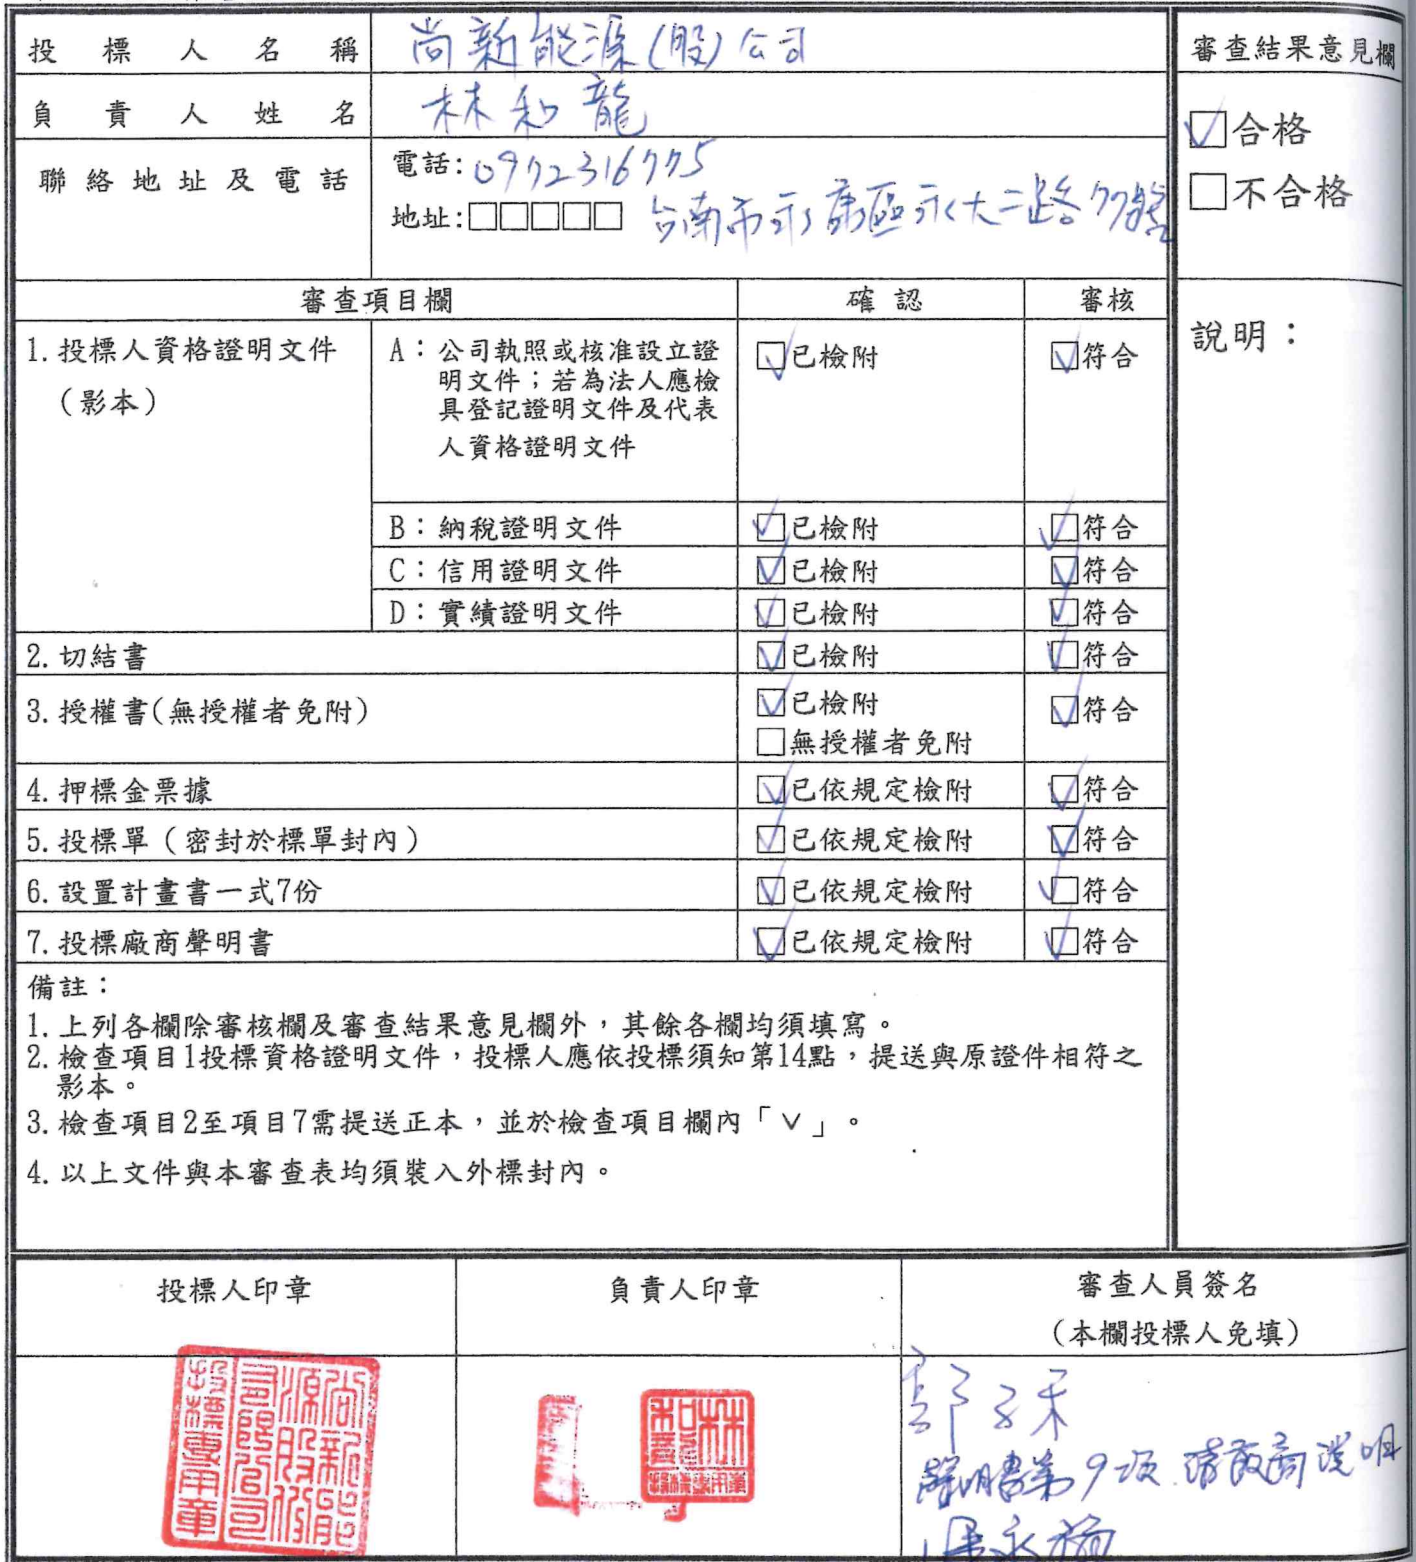 投標人名稱 尚新能源(股)公司 審查結果意見欄
負責人姓名 林和龍 ☑合格
□不合格
聯絡地址及電話 電話:0972316775
地址:□□□□□ 台南市永康區永大二路77號
審查項目欄 確認 審核
說明：
1.投標人資格證明文件 A：公司執照或核准設立證 ☑已檢附 ☑符合
（影本） 明文件；若為法人應檢
具登記證明文件及代表
人資格證明文件
B：納稅證明文件 ☑已檢附 ☑符合
C：信用證明文件 ☑已檢附 ☑符合
D：實績證明文件 ☑已檢附 ☑符合
2.切結書 ☑已檢附 ☑符合
3.授權書(無授權者免附) ☑已檢附 ☑符合
□無授權者免附
4.押標金票據 ☑已依規定檢附 ☑符合
5.投標單（密封於標單封內） ☑已依規定檢附 ☑符合
6.設置計畫書一式7份 ☑已依規定檢附 ☑符合
7.投標廠商聲明書 ☑已依規定檢附 ☑符合
備註：
1.上列各欄除審核欄及審查結果意見欄外，其餘各欄均須填寫。
2.檢查項目1投標資格證明文件，投標人應依投標須知第14點，提送與原證件相符之
影本。
3.檢查項目2至項目7需提送正本，並於檢查項目欄內「∨」。
4.以上文件與本審查表均須裝入外標封內。
投標人印章 負責人印章 審查人員簽名
(本欄投標人免填)
尚新能源股份有限公司投標專用章
林和龍投標專用章
聲明書第9項 請廠商說明